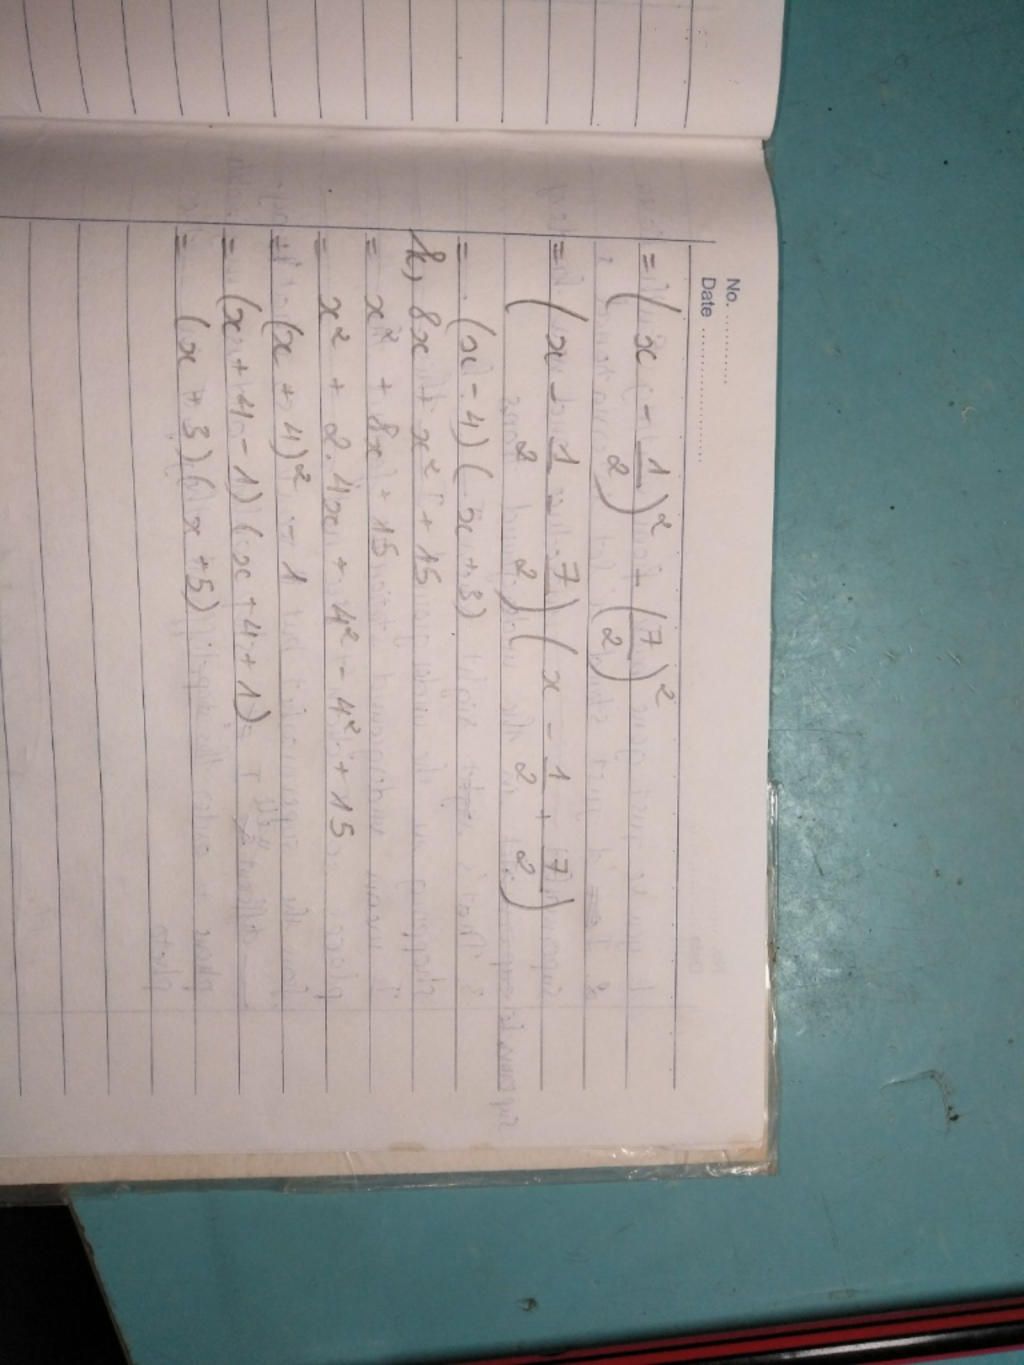 No. ............
Date ........................
= (x - 1/2)² - (7/2)²
= (x - 1/2 - 7/2) (x - 1/2 + 7/2)
= (x - 4) (x + 3)
k, 8x + x² + 15
= x² + 8x + 15
= x² + 2.4x + 4² - 4² + 15
= (x + 4)² - 1
= (x + 4 - 1) (x + 4 + 1)
= (x + 3) (x + 5)